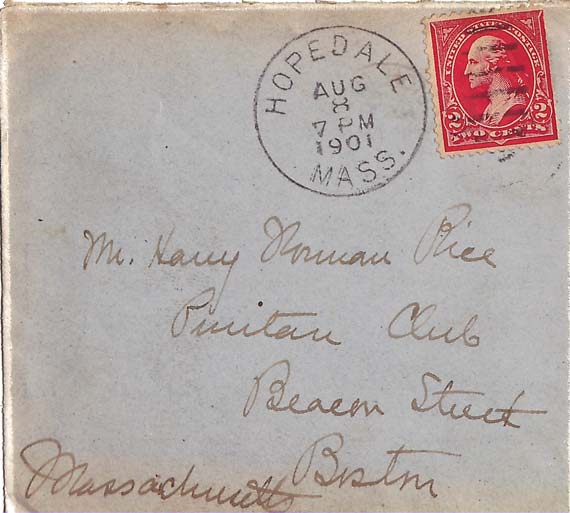 HOPEDALE
AUG
8
7 PM
1901
MASS.
UNITED STATES POSTAGE
2 2
TWO CENTS
Mr. Harry Norman Rice
Puritan Club
Beacon Street
Boston
Massachusetts